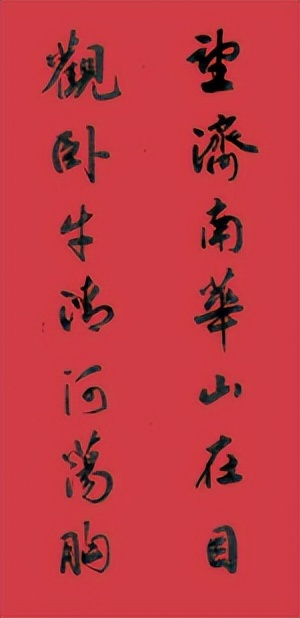 望濟南華山在目
觀卧牛清河蕩胸